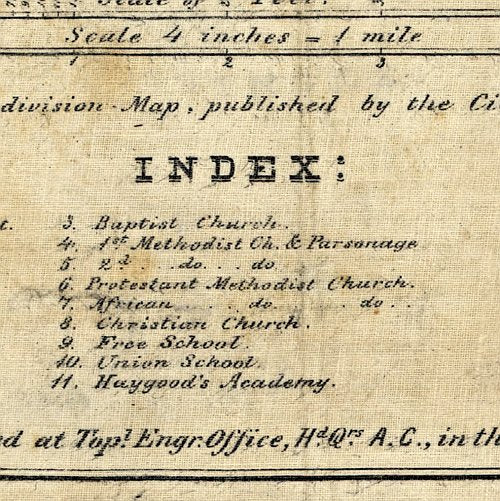 Scale of Feet.
Scale 4 inches = 1 mile
1 2 3
division Map, published by the Ci
INDEX:
t. 3. Baptist Church.
4. 1st Methodist Ch. & Parsonage
5. 2d . . do . . do
6. Protestant Methodist Church.
7. African . . . do . . . . do . .
8. Christian Church.
9. Free School.
10. Union School.
11. Haygood's Academy.
ed at Topl. Engr. Office, Hd. Qrs A.C., in th